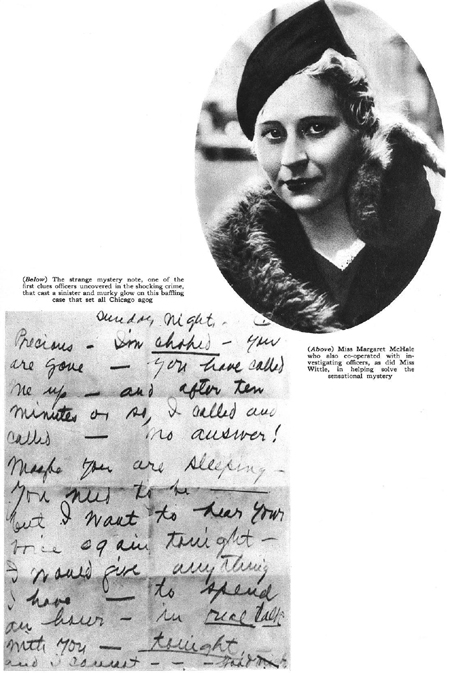 (Below) The strange mystery note, one of the
first clues officers uncovered in the shocking crime,
that cast a sinister and murky glow on this baffling
case that set all Chicago agog
(Above) Miss Margaret McHale
who also co-operated with in-
vestigating officers, as did Miss
Wittle, in helping solve the
sensational mystery
Sunday Night.
Precious - I'm choked - you
are gone — you have called
me up - and after ten
minutes or so, I called and
called — no answer!
Maybe you are sleeping -
You need to be —
but I want to hear your
voice again tonight -
I would give anything
I have — to spend
an hour - in real talk
with you — tonight.
and I cannot - -